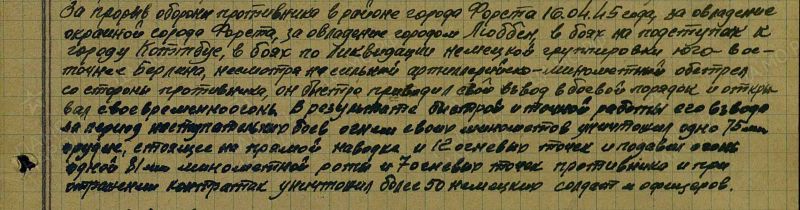 За прорыв обороны противника в районе города Форста 16.04.45 года, за овладение
окраиной города Форста, за овладение городом Люббен, в боях на подступах к
городу Котэтбус, в боях по ликвидации немецкой группировки юго-вос-
точнее Берлина, несмотря на сильный артиллерийско-минометный обстрел
со стороны противника, он быстро приводил свой взвод в боевой порядок и откры-
вал своевременно огонь. В результате быстрой и точной работы его взвода
за период наступательных боев огнем своих минометов уничтожил одно 75 мм
орудие, стоящее на прямой наводке и 12 огневых точек и подавил огонь
одной 81 мм минометной роты и 7 огневых точек противника и при
отражении контратак уничтожил более 50 немецких солдат и офицеров.